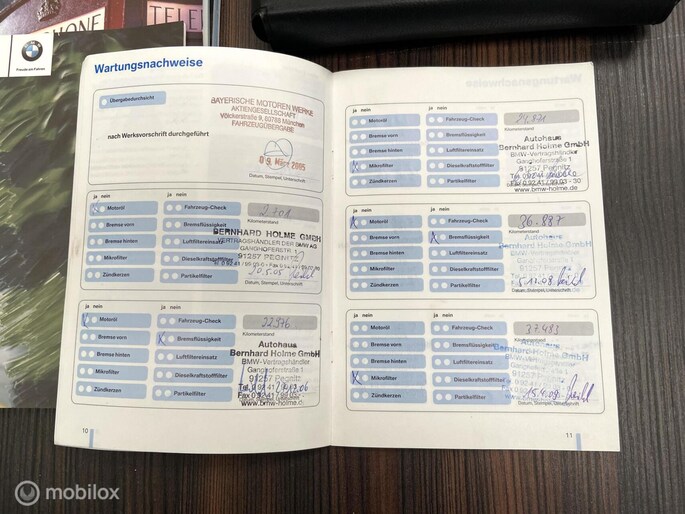 PHONE
TELE
BMW
Freude am Fahren
Wartungsnachweise
Übergabedurchsicht
BAYERISCHE MOTOREN WERKE
AKTIENGESELLSCHAFT
Völckerstraße 9, 80788 München
FAHRZEUGÜBERGABE
nach Werksvorschrift durchgeführt
09. März 2005
Datum, Stempel, Unterschrift
ja nein
Motoröl
Fahrzeug-Check
2701
Kilometerstand
Bremse vorn
Bremsflüssigkeit
BERNHARD HOLME GMBH
VERTRAGSHÄNDLER DER BMW AG
Bremse hinten
Luftfiltereinsatz
GANGHOFERSTR.
91257 PEGNITZ
Mikrofilter
Dieselkraftstofffilter
20.5.05
Datum, Stempel, Unterschrift
Zündkerzen
Partikelfilter
ja nein
ja nein
Motoröl
Fahrzeug-Check
22976
Kilometerstand
Bremse vorn
Bremsflüssigkeit
Autohaus
Bernhard Holme GmbH
Bremse hinten
Luftfiltereinsatz
BMW-Vertragshändler
Ganghoferstraße 1
Mikrofilter
Dieselkraftstofffilter
91257 Pegnitz
Zündkerzen
Partikelfilter
www.bmw-holme.de
10
ja nein
ja nein
Motoröl
Fahrzeug-Check
Kilometerstand
Bremse vorn
Bremsflüssigkeit
Autohaus
Bernhard Holme GmbH
Bremse hinten
Luftfiltereinsatz
BMW-Vertragshändler
Ganghoferstraße 1
Mikrofilter
Dieselkraftstofffilter
91257 Pegnitz
Zündkerzen
Partikelfilter
Fax 0 92 41 / 99 03 - 30
www.bmw-holme.de
ja nein
ja nein
Motoröl
Fahrzeug-Check
36.887
Kilometerstand
Bremse vorn
Bremsflüssigkeit
Autohaus
Bernhard Holme GmbH
Bremse hinten
Luftfiltereinsatz
Mikrofilter
Dieselkraftstofffilter
Zündkerzen
Partikelfilter
Datum, Stempel, Unterschrift
ja nein
ja nein
Motoröl
Fahrzeug-Check
37.483
Kilometerstand
Bremse vorn
Bremsflüssigkeit
Bernhard Holme GmbH
Bremse hinten
Luftfiltereinsatz
Mikrofilter
Dieselkraftstofffilter
Zündkerzen
Partikelfilter
15.4.09
Datum, Stempel, Unterschrift
11
mobilox